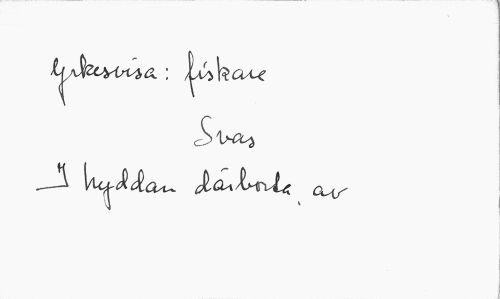 Yrkesvisa: fiskare
Svas
I hyddan därborta, av